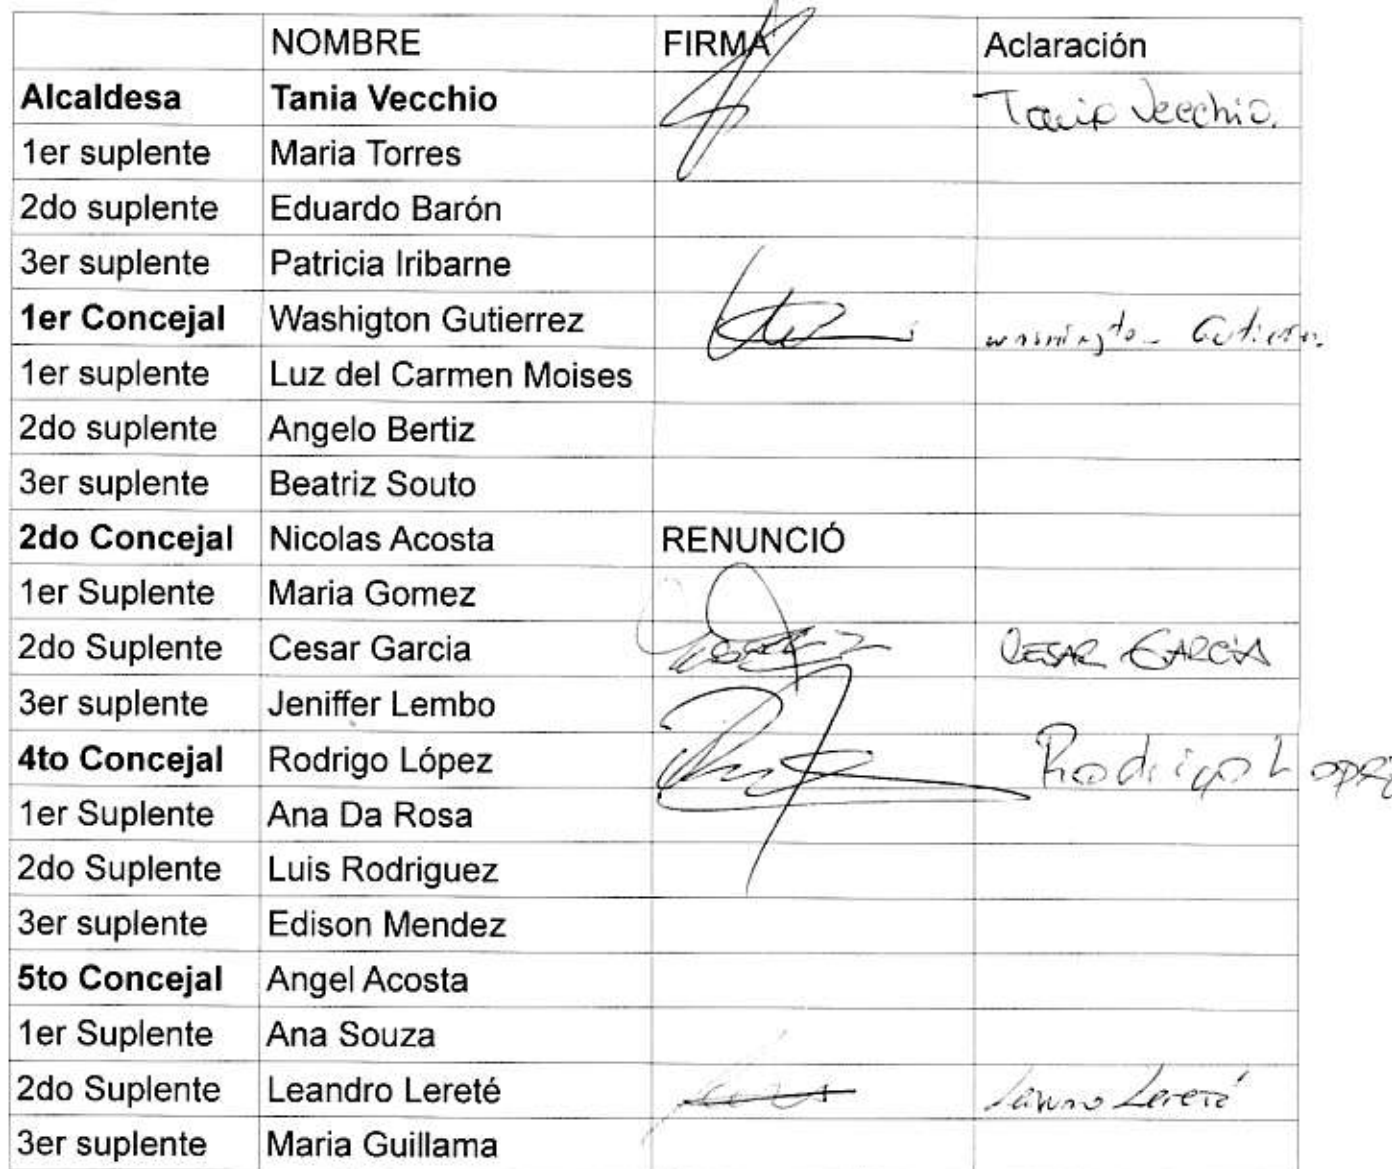 NOMBRE FIRMA Aclaración
Alcaldesa Tania Vecchio Tania Vecchio.
1er suplente Maria Torres
2do suplente Eduardo Barón
3er suplente Patricia Iribarne
1er Concejal Washigton Gutierrez Washington Gutierrez
1er suplente Luz del Carmen Moises
2do suplente Angelo Bertiz
3er suplente Beatriz Souto
2do Concejal Nicolas Acosta RENUNCIÓ
1er Suplente Maria Gomez
2do Suplente Cesar Garcia CESAR GARCÍA
3er suplente Jeniffer Lembo
4to Concejal Rodrigo López Rodrigo Lopez
1er Suplente Ana Da Rosa
2do Suplente Luis Rodriguez
3er suplente Edison Mendez
5to Concejal Angel Acosta
1er Suplente Ana Souza
2do Suplente Leandro Lereté Lereté
3er suplente Maria Guillama